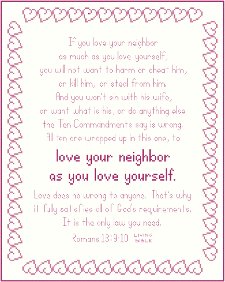 If you love your neighbor
as much as you love yourself,
you will not want to harm or cheat him,
or kill him, or steal from him.
And you won't sin with his wife,
or want what is his, or do anything else
the Ten Commandments say is wrong.
All ten are wrapped up in this one, to
love your neighbor
as you love yourself.
Love does no wrong to anyone. That's why
it fully satisfies all of God's requirements.
It is the only law you need.
Romans 13:9-10 LIVING
BIBLE